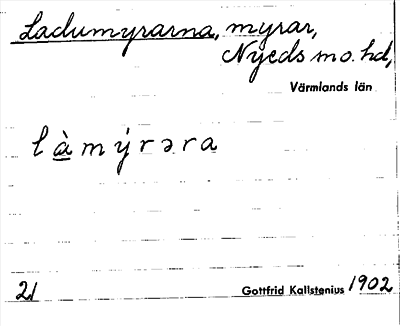 Ladumyrarna, myrar,
Nyeds sn o. hd,
Värmlands län
l à m ý r ə r a
21 Gottfrid Kallstenius 1902